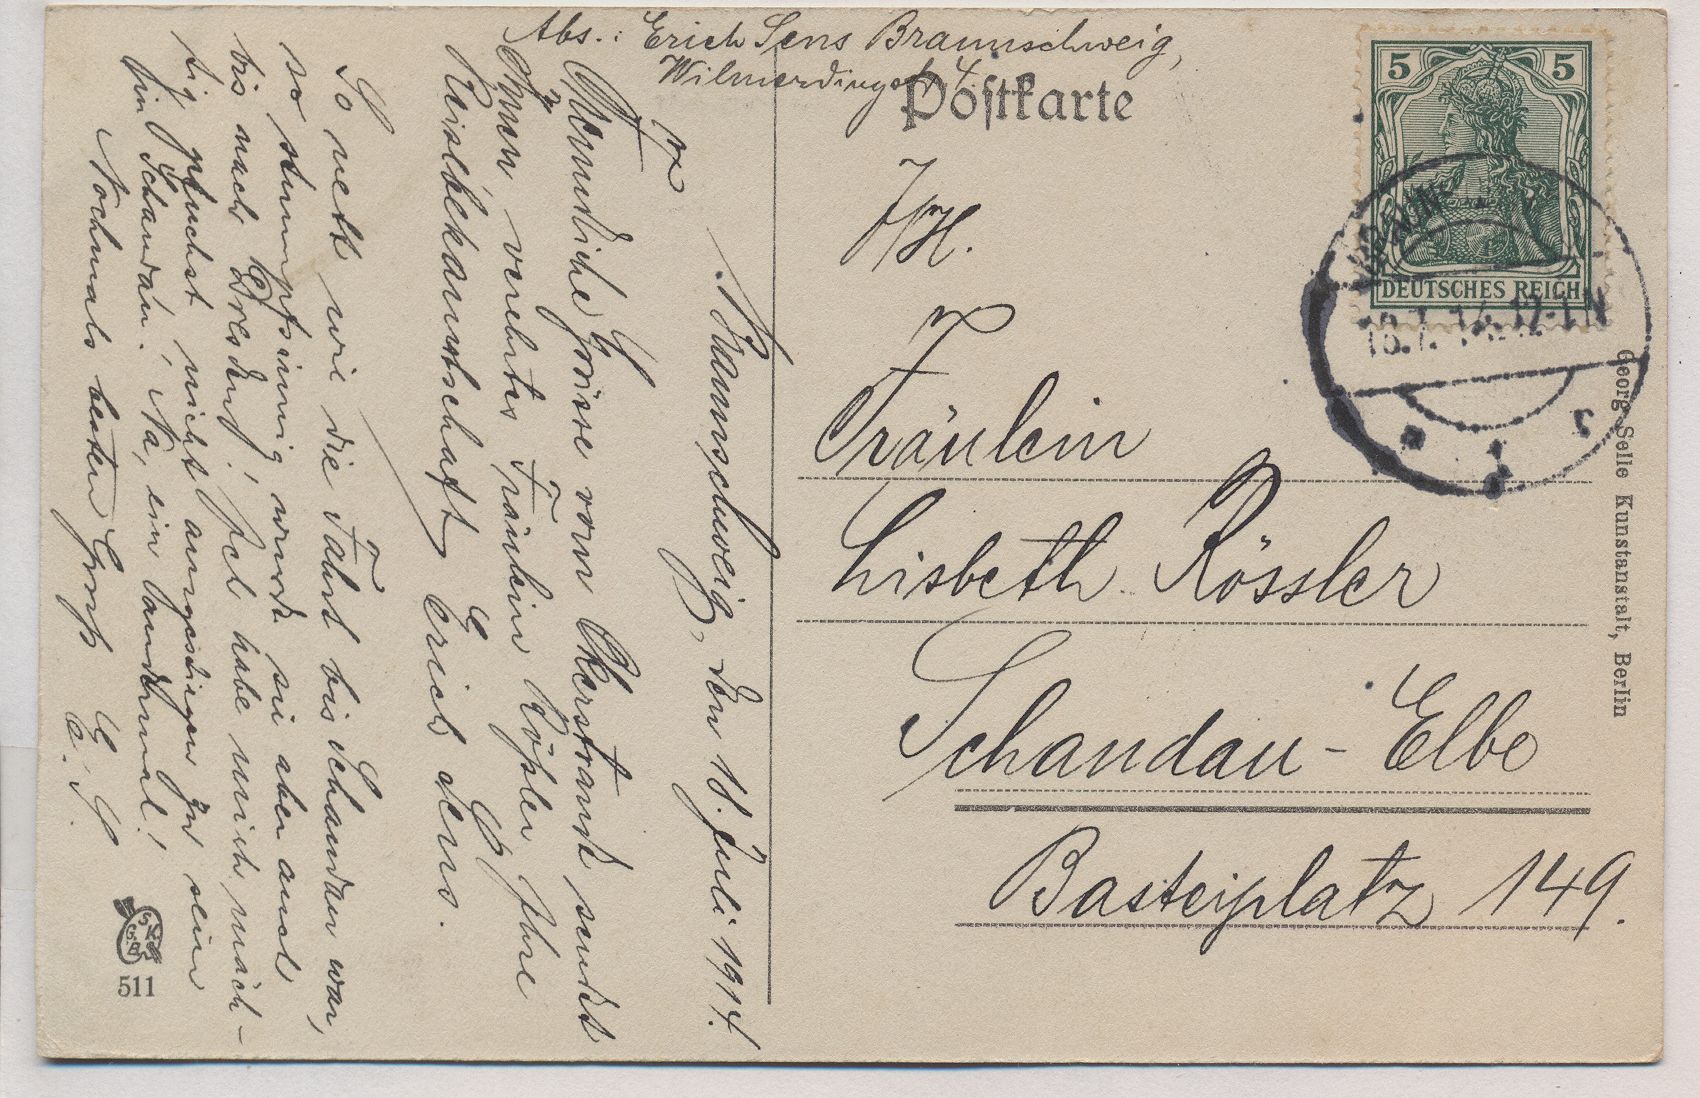 Abs.: Erich Sens Braunschweig,
Wilmerdingstr. 4
Postkarte
5 5
DEUTSCHES REICH
12-1N
Fräulein
Lisbeth Rössler
Schandau - Elbe
Basteiplatz 149.
Georg Selle Kunstanstalt, Berlin
Braunschweig, den 18. Juli 1914.
Freundliche Grüsse vom Okerstrand sendet
Ihnen, verehrtes Fräulein Rößler Ihre
Reisebekanntschaft Erich Sens.
So nett wie die Fahrt bis Schandau war,
so stumpfsinnig wurde sie aber auch
bis nach Dresden! Ich habe mich mäch-
tig nicht ausgestiegen zu sein
in Schandau! Na, ein andermal!
Nochmals besten Gruß
E. S.
511